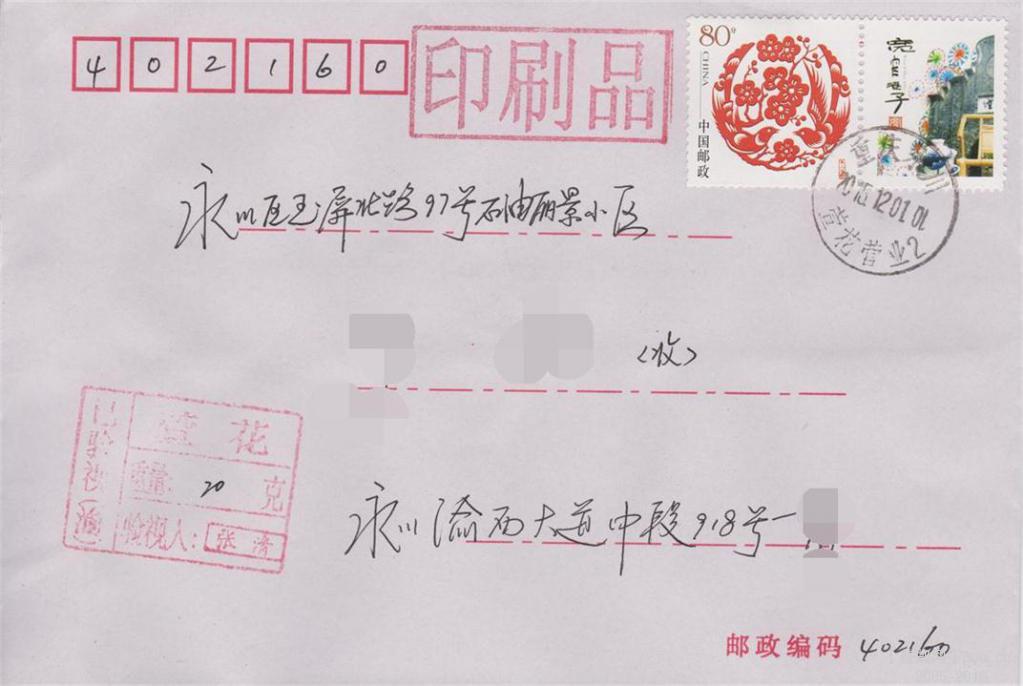 402160
印刷品
80分
CHINA
中国邮政
永川区玉屏北路97号石油丽景小区
2015.12.01.01
萱花营业2
(收)
已验视(渝)
萱花
重量: 20 克
验视人: 张清
永川渝西大道中段918号一
邮政编码 402160